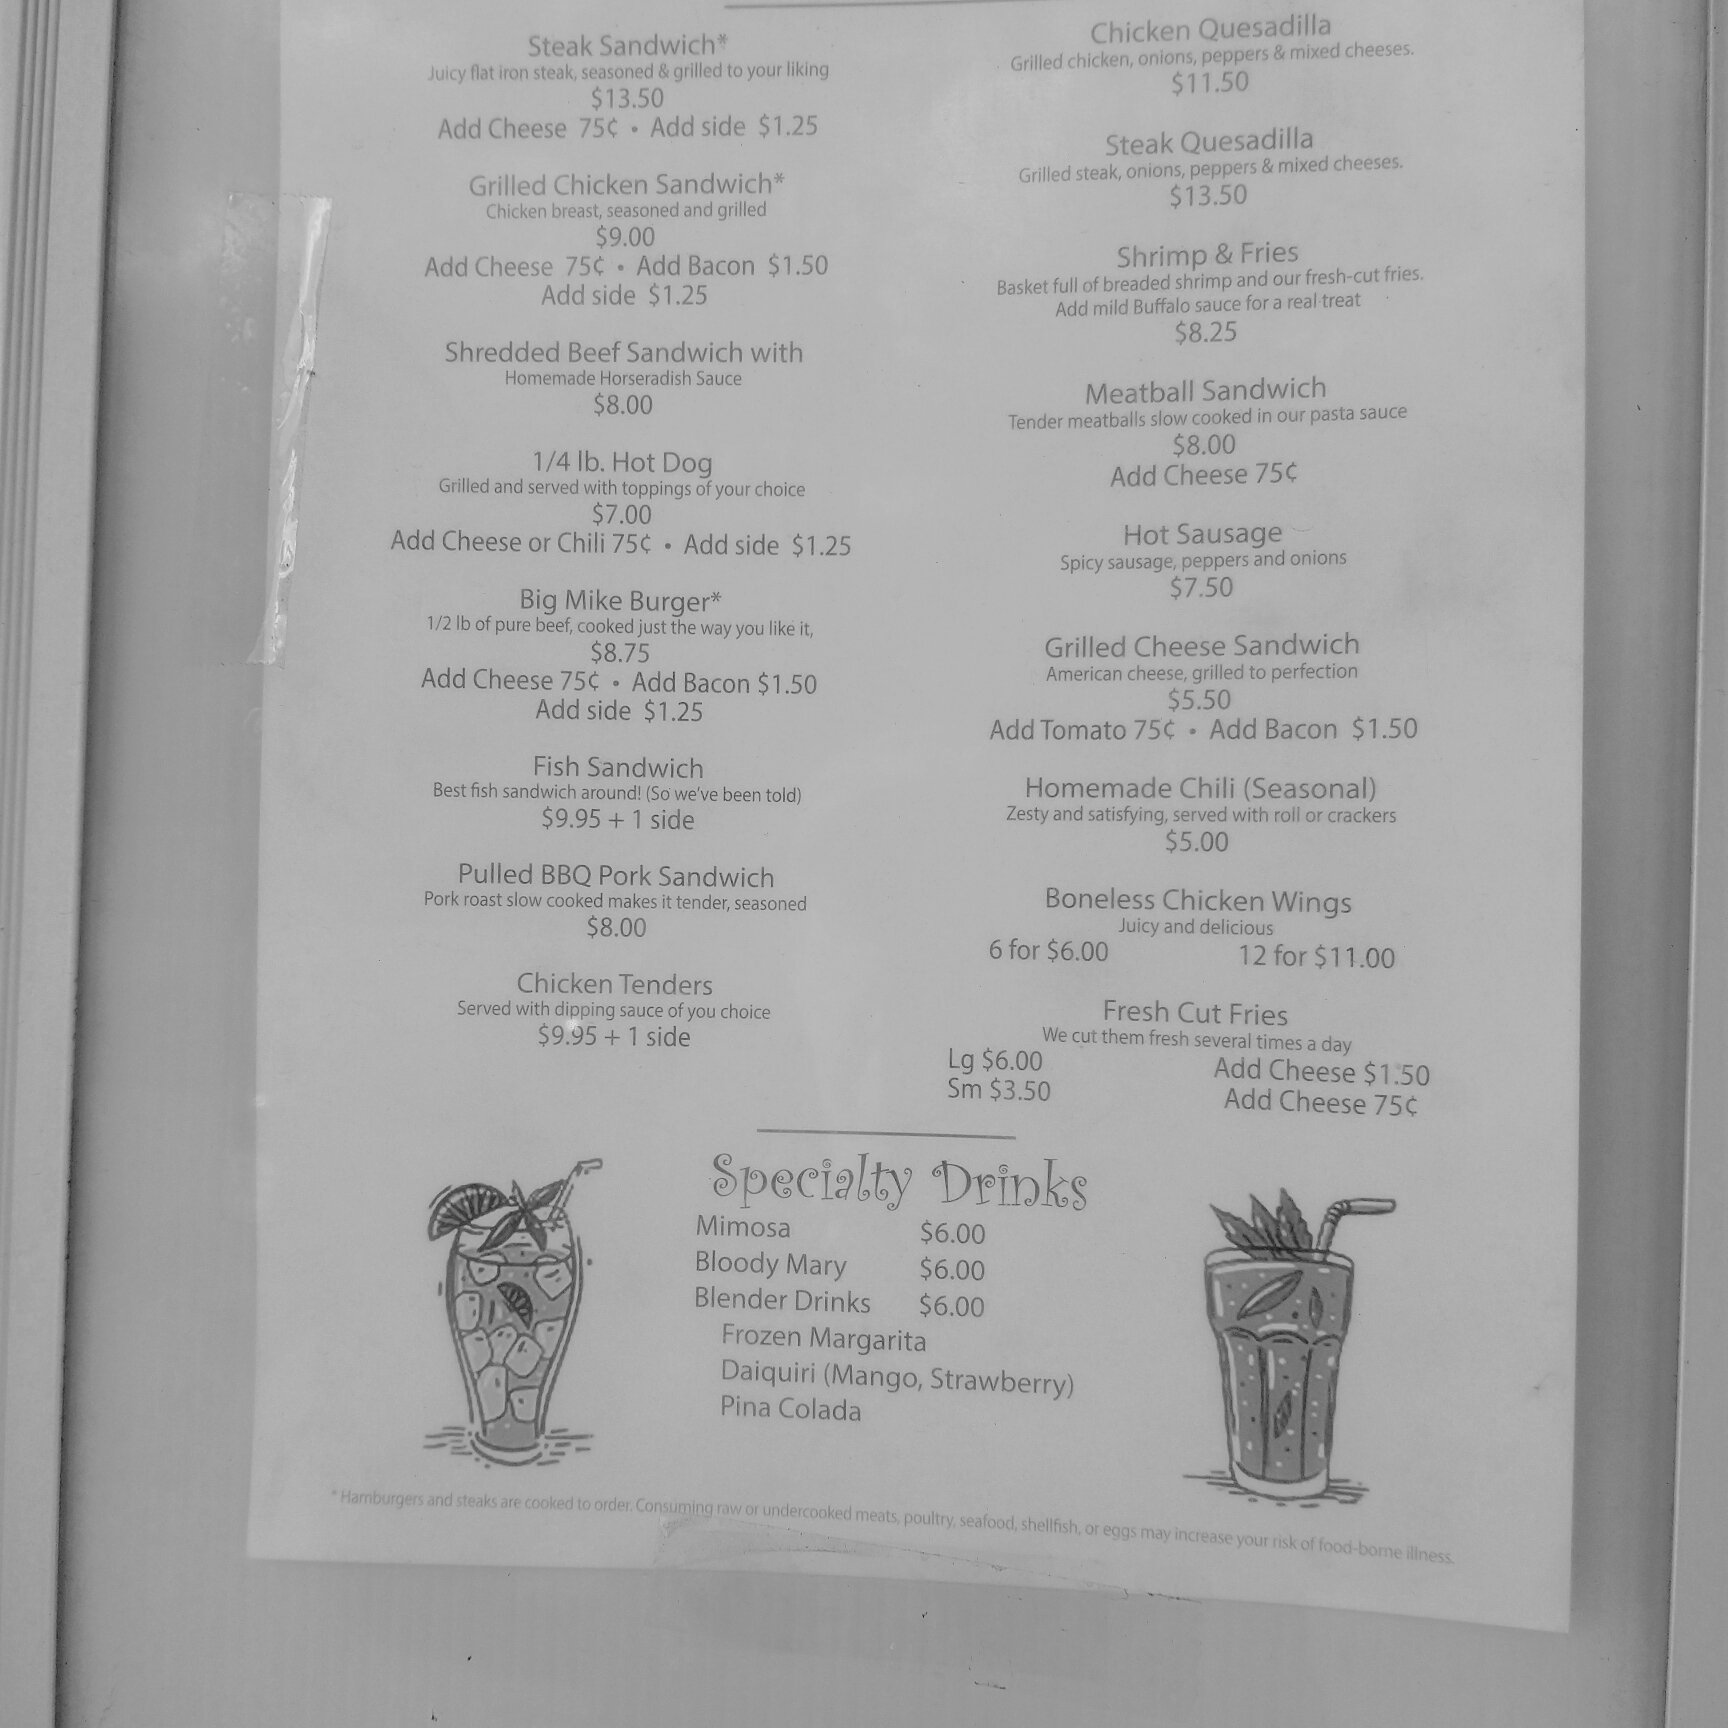 Steak Sandwich*
Juicy flat iron steak, seasoned & grilled to your liking
$13.50
Add Cheese 75¢ • Add side $1.25
Grilled Chicken Sandwich*
Chicken breast, seasoned and grilled
$9.00
Add Cheese 75¢ • Add Bacon $1.50
Add side $1.25
Shredded Beef Sandwich with
Homemade Horseradish Sauce
$8.00
1/4 lb. Hot Dog
Grilled and served with toppings of your choice
$7.00
Add Cheese or Chili 75¢ • Add side $1.25
Big Mike Burger*
1/2 lb of pure beef, cooked just the way you like it,
$8.75
Add Cheese 75¢ • Add Bacon $1.50
Add side $1.25
Fish Sandwich
Best fish sandwich around! (So we've been told)
$9.95 + 1 side
Pulled BBQ Pork Sandwich
Pork roast slow cooked makes it tender, seasoned
$8.00
Chicken Tenders
Served with dipping sauce of you choice
$9.95 + 1 side
Chicken Quesadilla
Grilled chicken, onions, peppers & mixed cheeses.
$11.50
Steak Quesadilla
Grilled steak, onions, peppers & mixed cheeses.
$13.50
Shrimp & Fries
Basket full of breaded shrimp and our fresh-cut fries.
Add mild Buffalo sauce for a real treat
$8.25
Meatball Sandwich
Tender meatballs slow cooked in our pasta sauce
$8.00
Add Cheese 75¢
Hot Sausage
Spicy sausage, peppers and onions
$7.50
Grilled Cheese Sandwich
American cheese, grilled to perfection
$5.50
Add Tomato 75¢ • Add Bacon $1.50
Homemade Chili (Seasonal)
Zesty and satisfying, served with roll or crackers
$5.00
Boneless Chicken Wings
Juicy and delicious
6 for $6.00 12 for $11.00
Fresh Cut Fries
We cut them fresh several times a day
Lg $6.00 Add Cheese $1.50
Sm $3.50 Add Cheese 75¢
Specialty Drinks
Mimosa $6.00
Bloody Mary $6.00
Blender Drinks $6.00
Frozen Margarita
Daiquiri (Mango, Strawberry)
Pina Colada
* Hamburgers and steaks are cooked to order. Consuming raw or undercooked meats, poultry, seafood, shellfish, or eggs may increase your risk of food-borne illness.